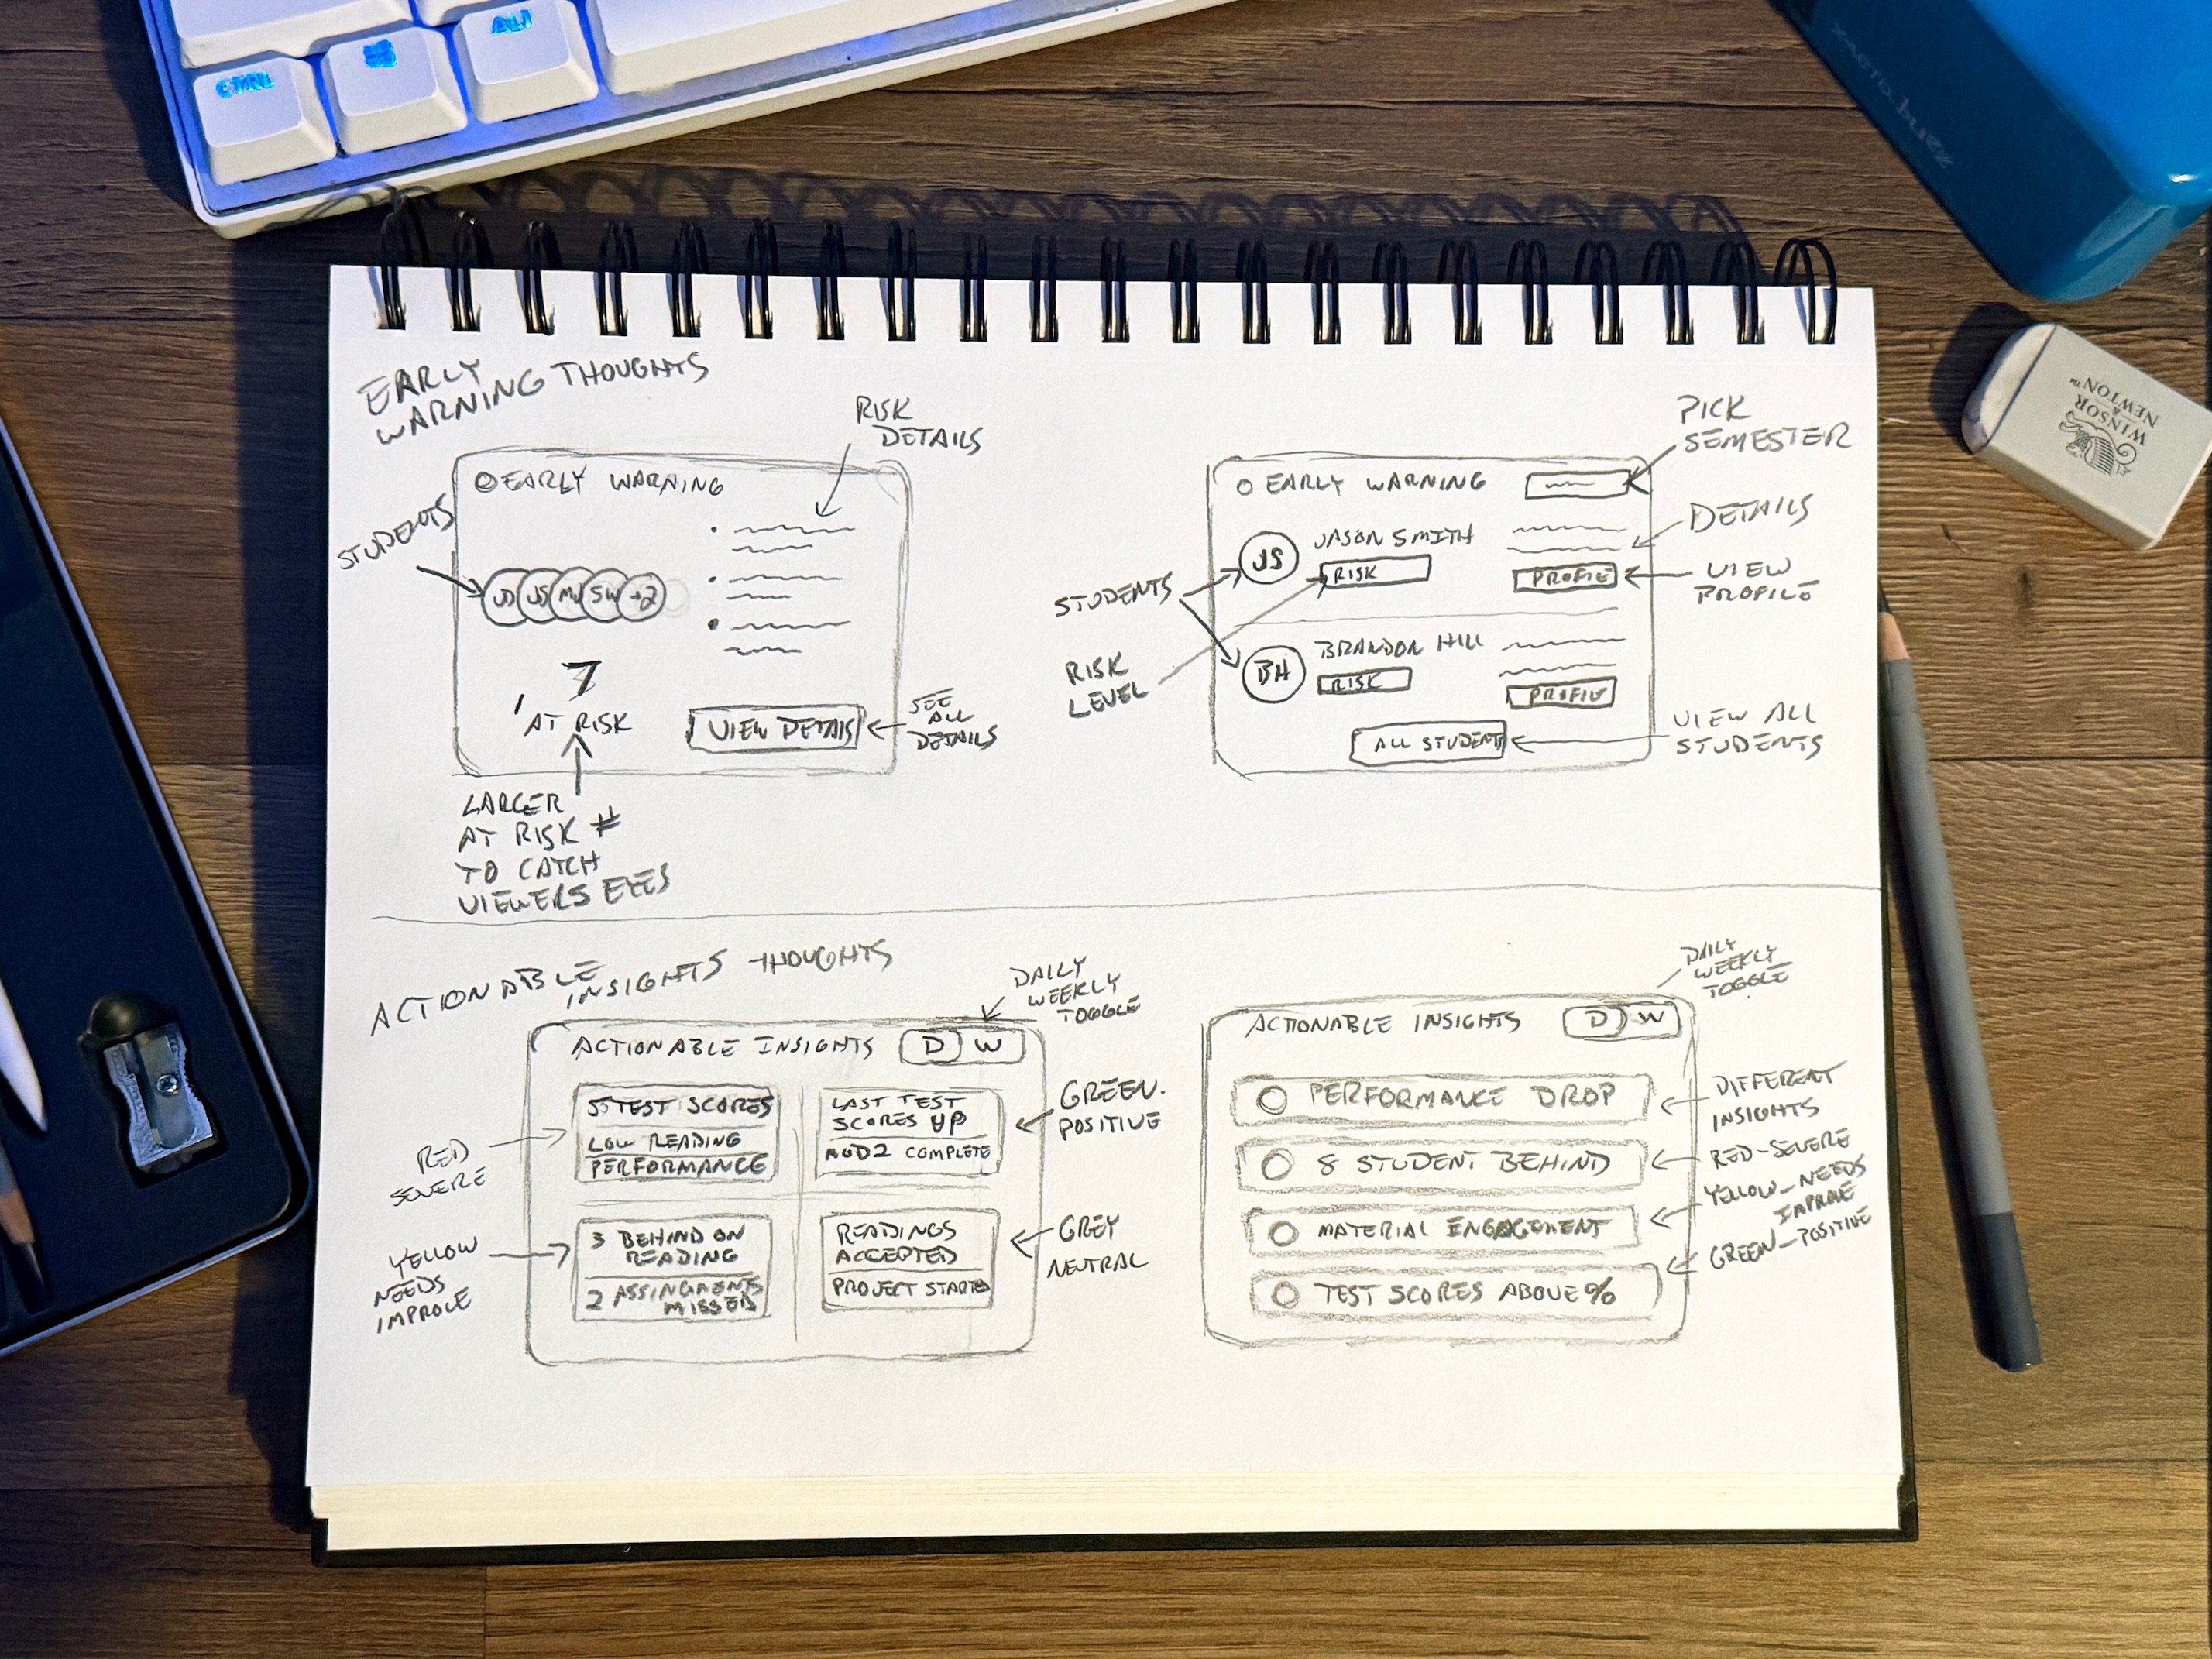 CTRL
ALT
X-ACTO buzz
WINSOR
&
NEWTON™
EARLY
WARNING THOUGHTS
RISK
DETAILS
STUDENTS
EARLY WARNING
JD JS MJ SW +2
7
AT RISK
VIEW DETAILS
SEE
ALL
DETAILS
LARGER
AT RISK #
TO CATCH
VIEWERS EYES
PICK
SEMESTER
EARLY WARNING
JS
JASON SMITH
RISK
DETAILS
PROFILE
VIEW
PROFILE
STUDENTS
BH
BRANDON HILL
RISK
PROFILE
RISK
LEVEL
ALL STUDENTS
VIEW ALL
STUDENTS
ACTIONABLE
INSIGHTS THOUGHTS
DAILY
WEEKLY
TOGGLE
ACTIONABLE INSIGHTS D W
5 TEST SCORES
LOW READING
PERFORMANCE
LAST TEST
SCORES UP
MOD 2 COMPLETE
GREEN.
POSITIVE
RED
SEVERE
3 BEHIND ON
READING
2 ASSINGMENTS
MISSED
READINGS
ACCEPTED
PROJECT STARTED
GREY
NEUTRAL
YELLOW
NEEDS
IMPROVE
DAILY
WEEKLY
TOGGLE
ACTIONABLE INSIGHTS D W
PERFORMANCE DROP
8 STUDENT BEHIND
MATERIAL ENGAGEMENT
TEST SCORES ABOVE %
DIFFERENT
INSIGHTS
RED-SEVERE
YELLOW-NEEDS
IMPROVE
GREEN-POSITIVE